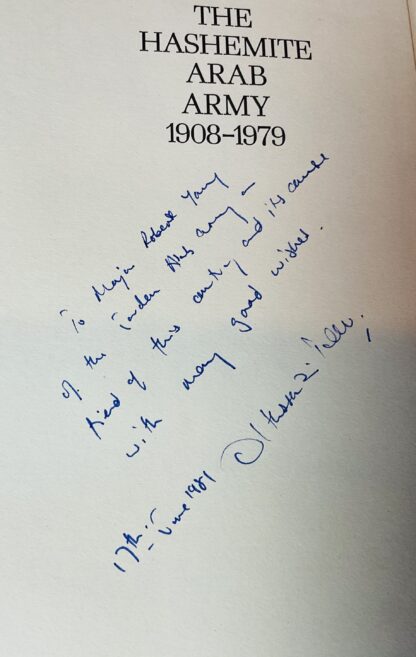 THE
HASHEMITE
ARAB
ARMY
1908–1979
To Major Robert Young
of the Jordan Arab Army –
friend of this country and its cause
with many good wishes.
17th June 1981